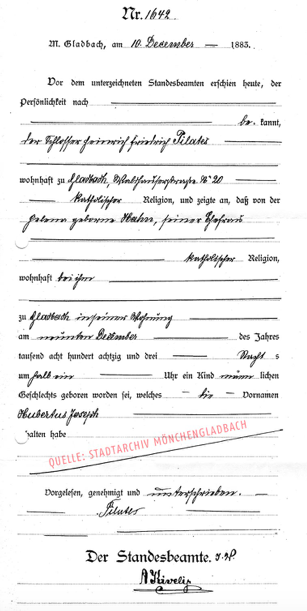 Nr. 1642.
M. Gladbach, am 10. December 1883.
Vor dem unterzeichneten Standesbeamten erschien heute, der
Persönlichkeit nach
be kannt,
der Schlosser Heinrich Friedrich Pilates
wohnhaft zu Gladbach, Waldhausenerstraße № 20
katholischer Religion, und zeigte an, daß von der
Helena geborene Hahn, seiner Ehefrau
katholischer Religion,
wohnhaft bei ihm
zu Gladbach in seiner Wohnung
am neunten December des Jahres
tausend acht hundert achtzig und drei Nachts
um halb ein Uhr ein Kind männ lichen
Geschlechts geboren worden sei, welches die Vornamen
Hubertus Joseph
halten habe
QUELLE: STADTARCHIV MÖNCHENGLADBACH
Vorgelesen, genehmigt und unterschrieben.
Pilates
Der Standesbeamte. I. V.